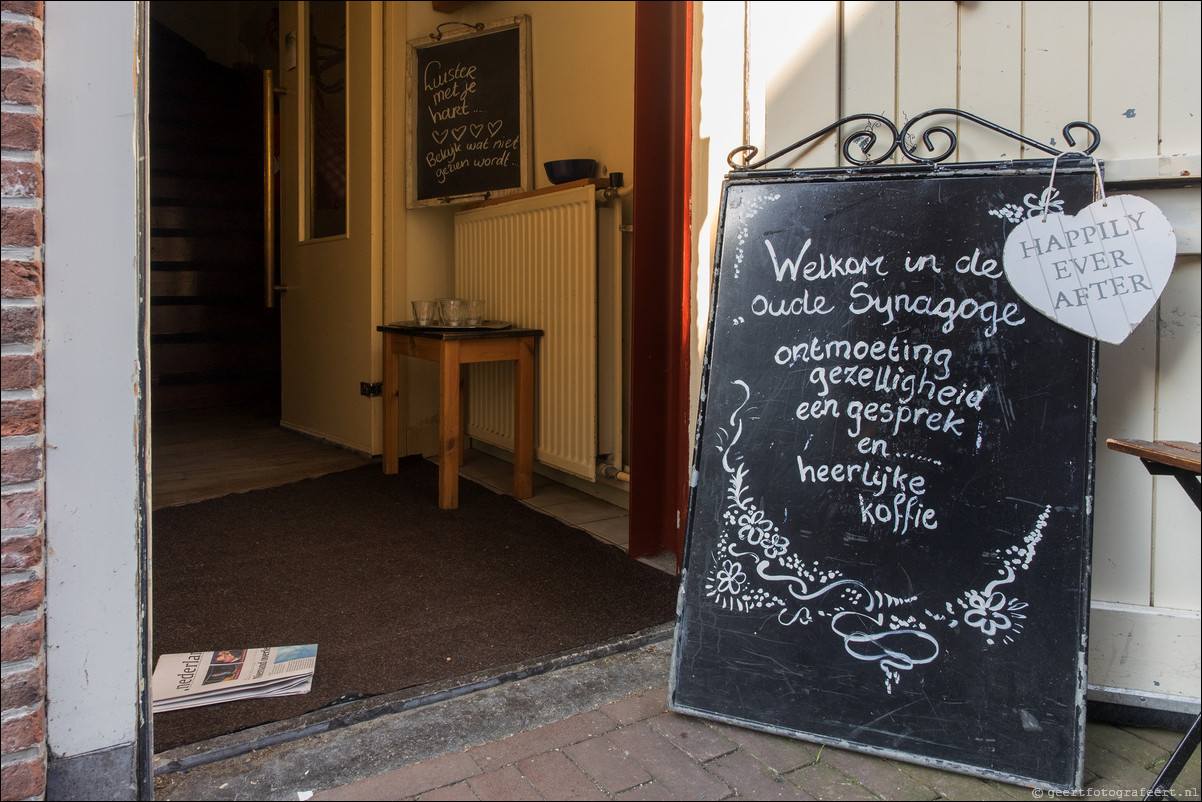 Luister
met je
hart...
Bekijk wat niet
gezien wordt...
Welkom in de
oude Synagoge
ontmoeting
gezelligheid
een gesprek
en........
heerlijke
koffie
HAPPILY
EVER
AFTER
© geertfotografeert.nl